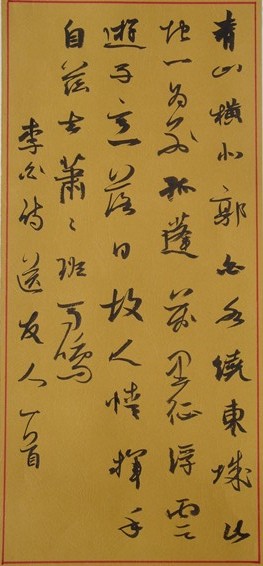 青山橫北郭白水繞東城此
地一為別孤蓬萬里征浮雲
遊子意落日故人情揮手
自茲去蕭〻班馬鳴
李白詩送友人一首